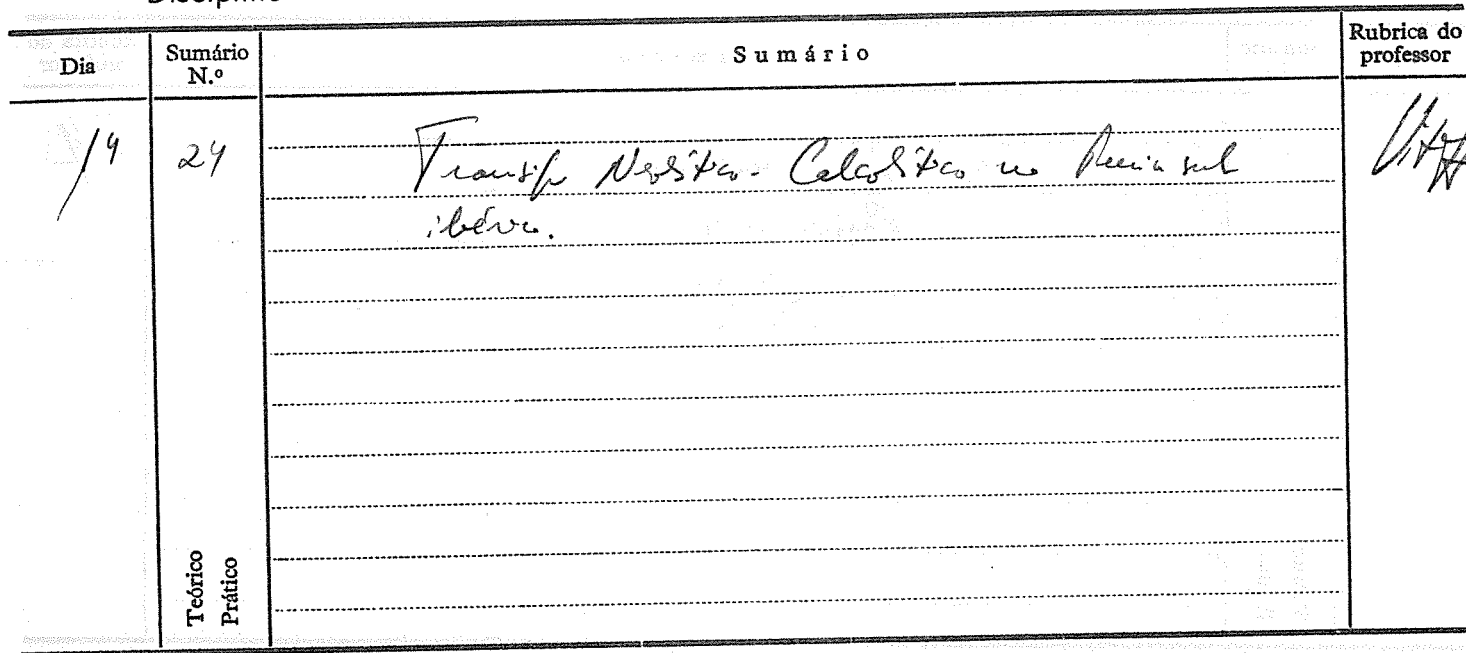 Dia
Sumário N.º
Sumário
Rubrica do professor
/4
24
Transição Neolítico-Calcolítico na Península
ibérica.
Teórico
Prático